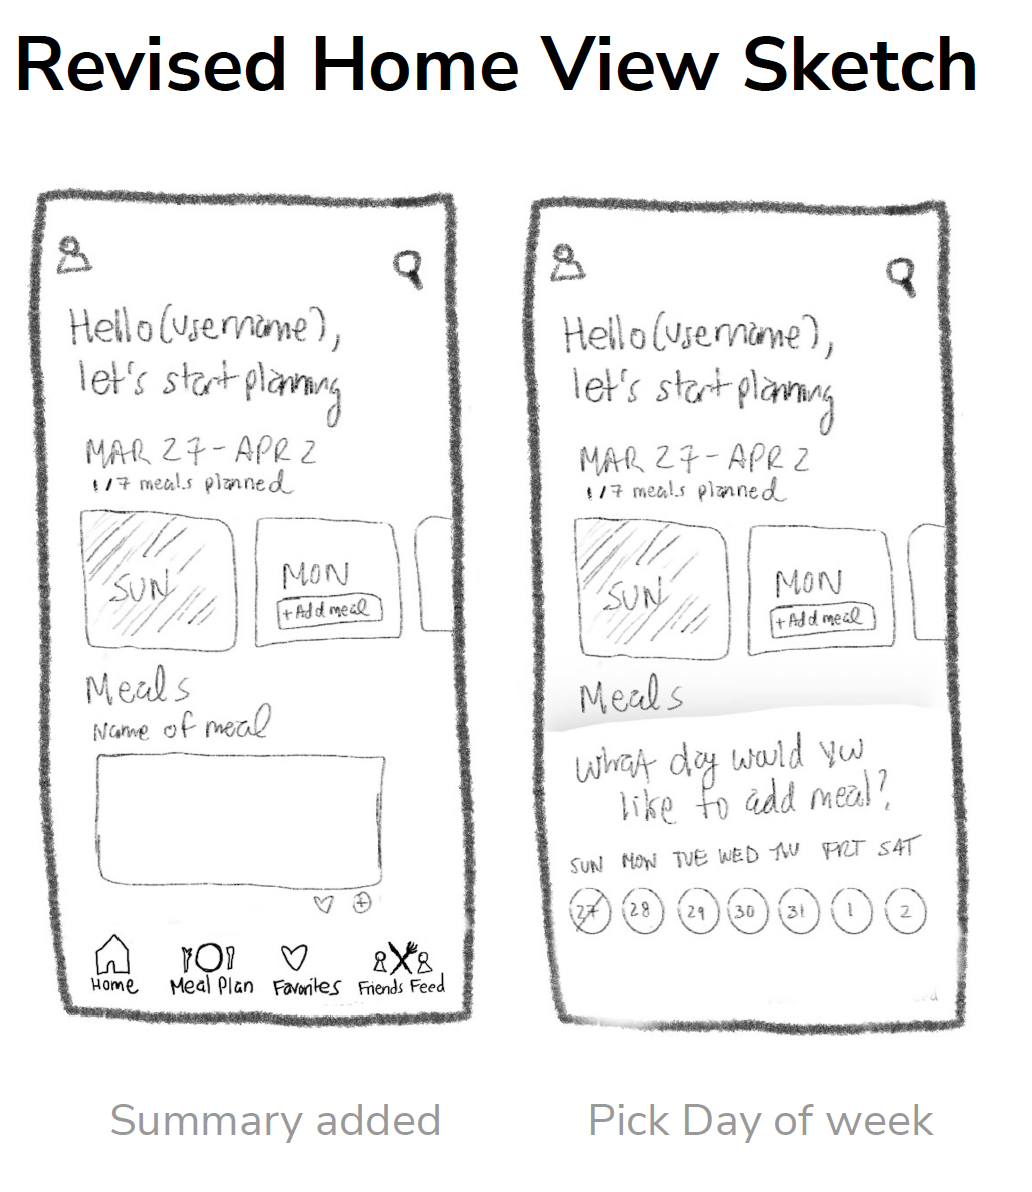 Revised Home View Sketch
Hello (username),
let's start planning
MAR 27 - APR 2
1/7 meals planned
SUN
MON
+Add meal
Meals
Name of meal
Home
Meal Plan
Favorites
Friends Feed
Summary added
Hello (username),
let's start planning
MAR 27 - APR 2
1/7 meals planned
SUN
MON
+Add meal
Meals
What day would you
like to add meal?
SUN MON TUE WED THU FRI SAT
27 28 29 30 31 1 2
Pick Day of week